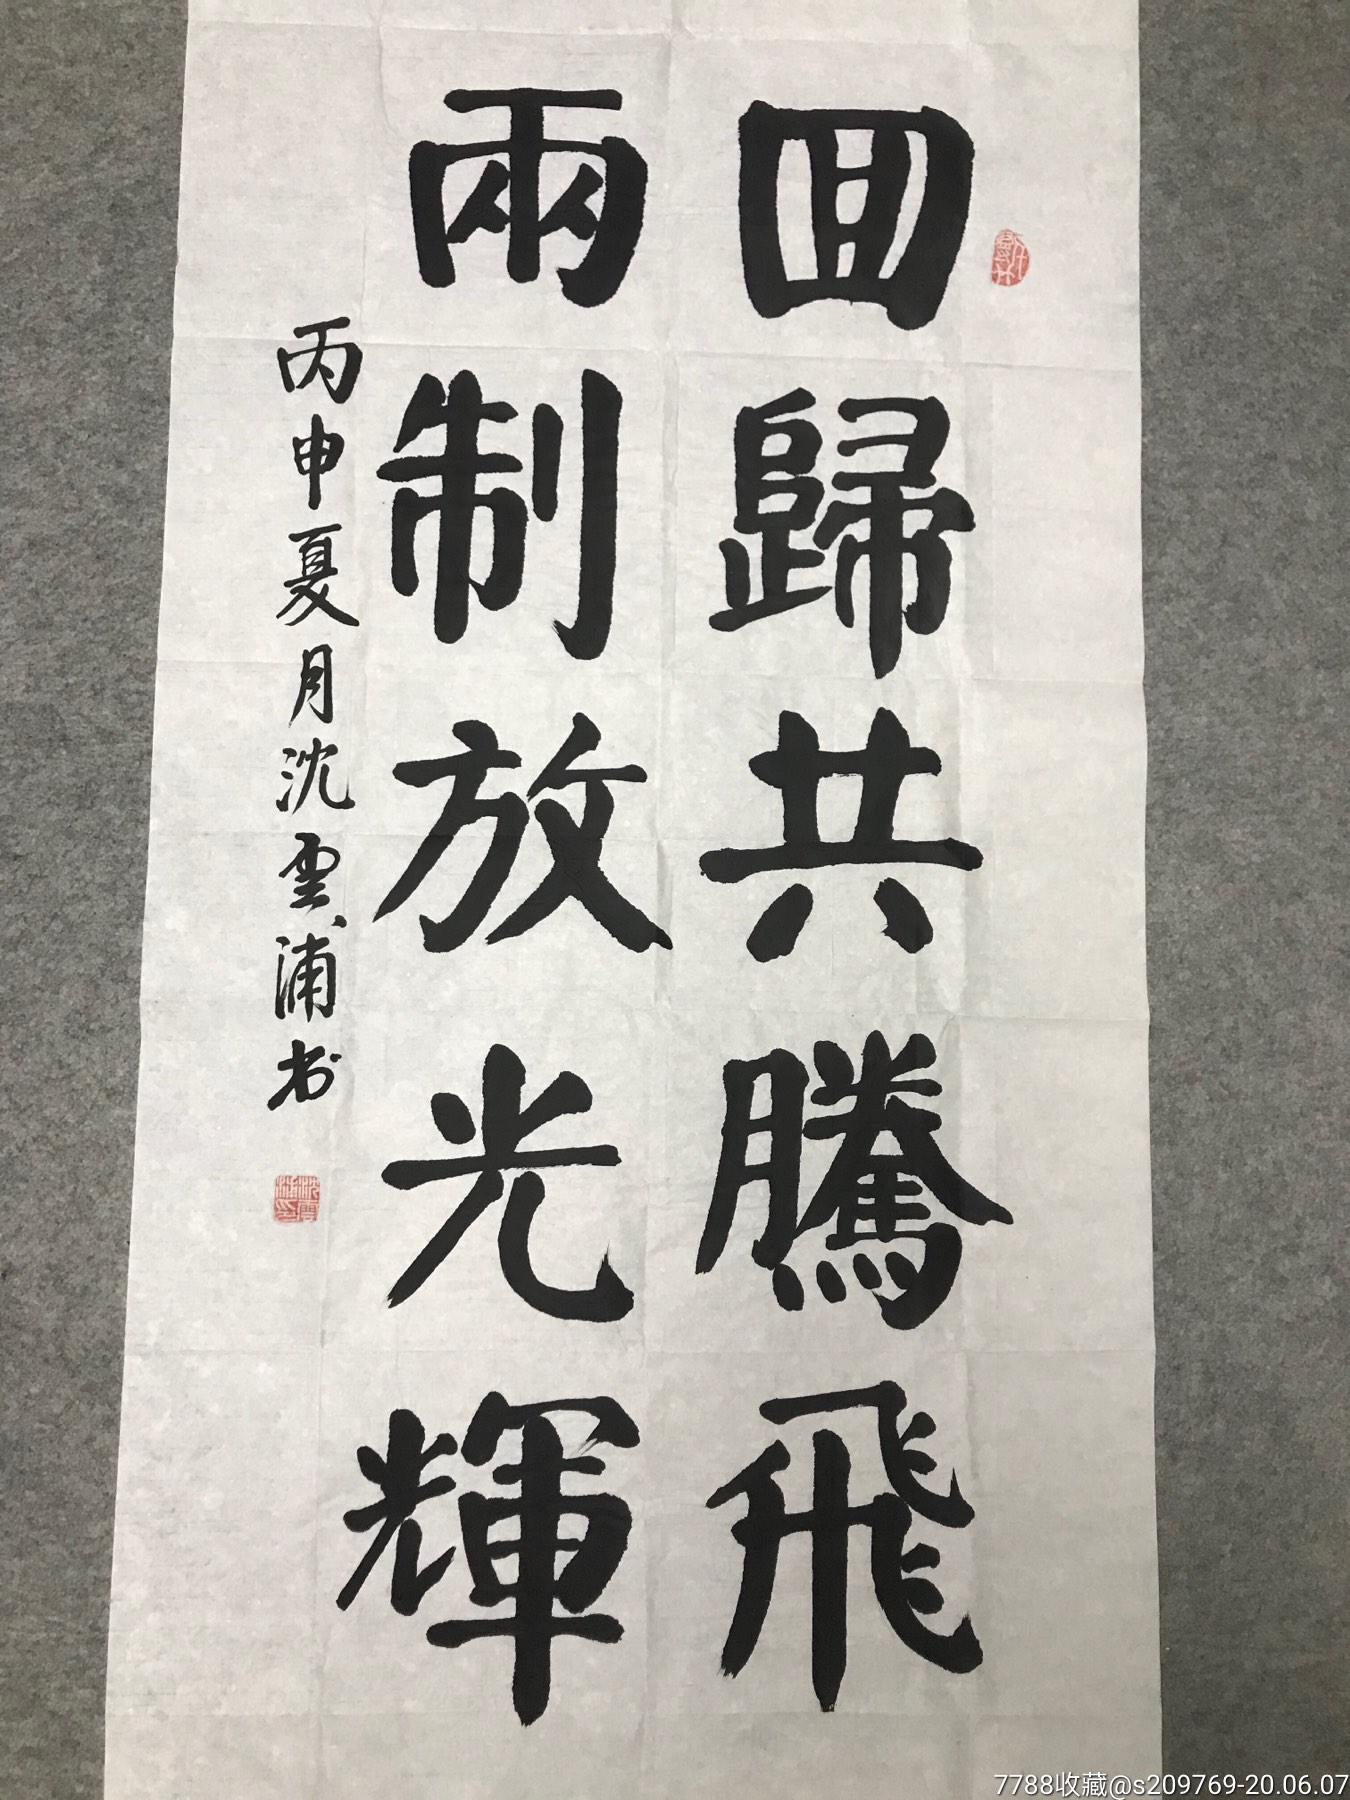 回歸共騰飛
兩制放光輝
丙申夏月沈雲浦书
7788收藏@s209769-20.06.07